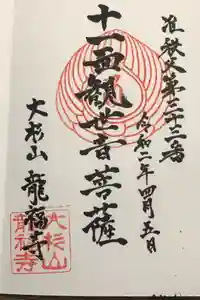 准秩父第二十三番
令和二年四月五日
十一面観世音菩薩
大杉山 龍福寺
大杉山
龍福寺